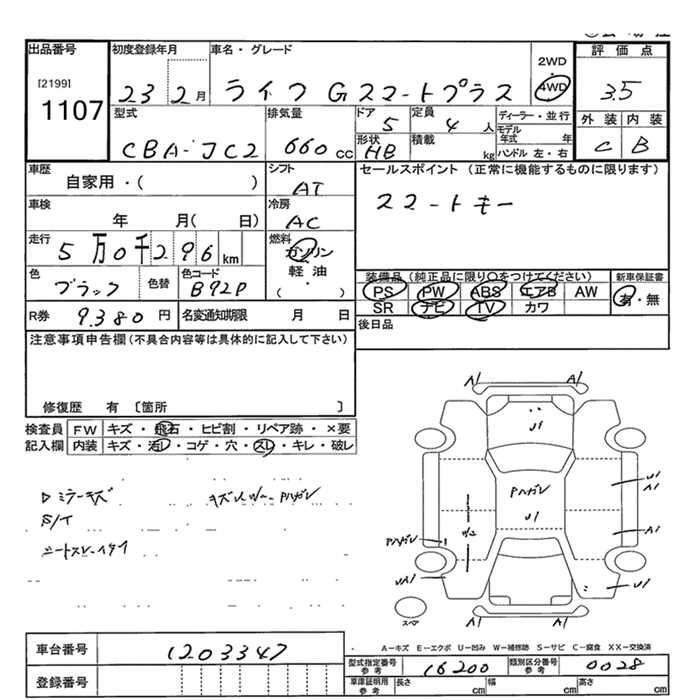 出品番号
[2199]
1107
初度登録年月
23 2月
車名・グレード
ライフ Gスマートプラス
2WD
4WD
評価点
3.5
外装 内装
C B
型式
CBA-JC2
排気量
660 cc
ドア
5
定員
4 人
形状
HB
積載
kg
ディーラー・並行
モデル年式 年
ハンドル 左・右
車歴
自家用・( )
シフト
AT
車検
年 月( 日)
冷房
AC
走行
5万0千296km
燃料
ガソリン
軽油
( ・ )
色
ブラック
色替
色コード
B92P
R券
9,380円
名変通知期限 月 日
セールスポイント (正常に機能するものに限ります)
スマートキー
装備品 (純正品に限り○をつけてください)
PS PW ABS エアB AW
SR ナビ TV カワ
新車保証書
有・無
後日品
注意事項申告欄(不具合内容等は具体的に記入して下さい)
修復歴 有 〔箇所 〕
検査員 FW キズ・飛石・ヒビ割・リペア跡・×要
記入欄 内装 キズ・汚レ・コゲ・穴・スレ・キレ・破レ
Dミラーキズ
S/イ
A1 A1
U1
Pハガレ
U1
U1
A1
A1
W2
Pハガレ
UA1
U1
A1 A1
スペア
A-キズ E-エクボ U-凹み W-補修跡 S-サビ C-腐食 XX-交換済
車台番号
1203347
登録番号
型式指定番号 参考
16200
類別区分番号 参考
0028
車庫証明用 参考
長さ cm 幅 cm 高さ cm